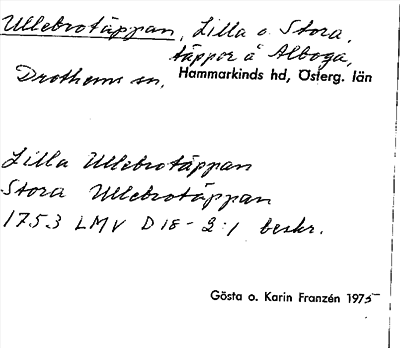 Ullebrotäppan, Lilla o. Stora,
täppor å Alboga,
Drothems sn, Hammarkinds hd, Österg. län
Lilla Ullebrotäppan
Stora Ullebrotäppan
1753 LMV D18-2:1 beskr.
Gösta o. Karin Franzén 1975